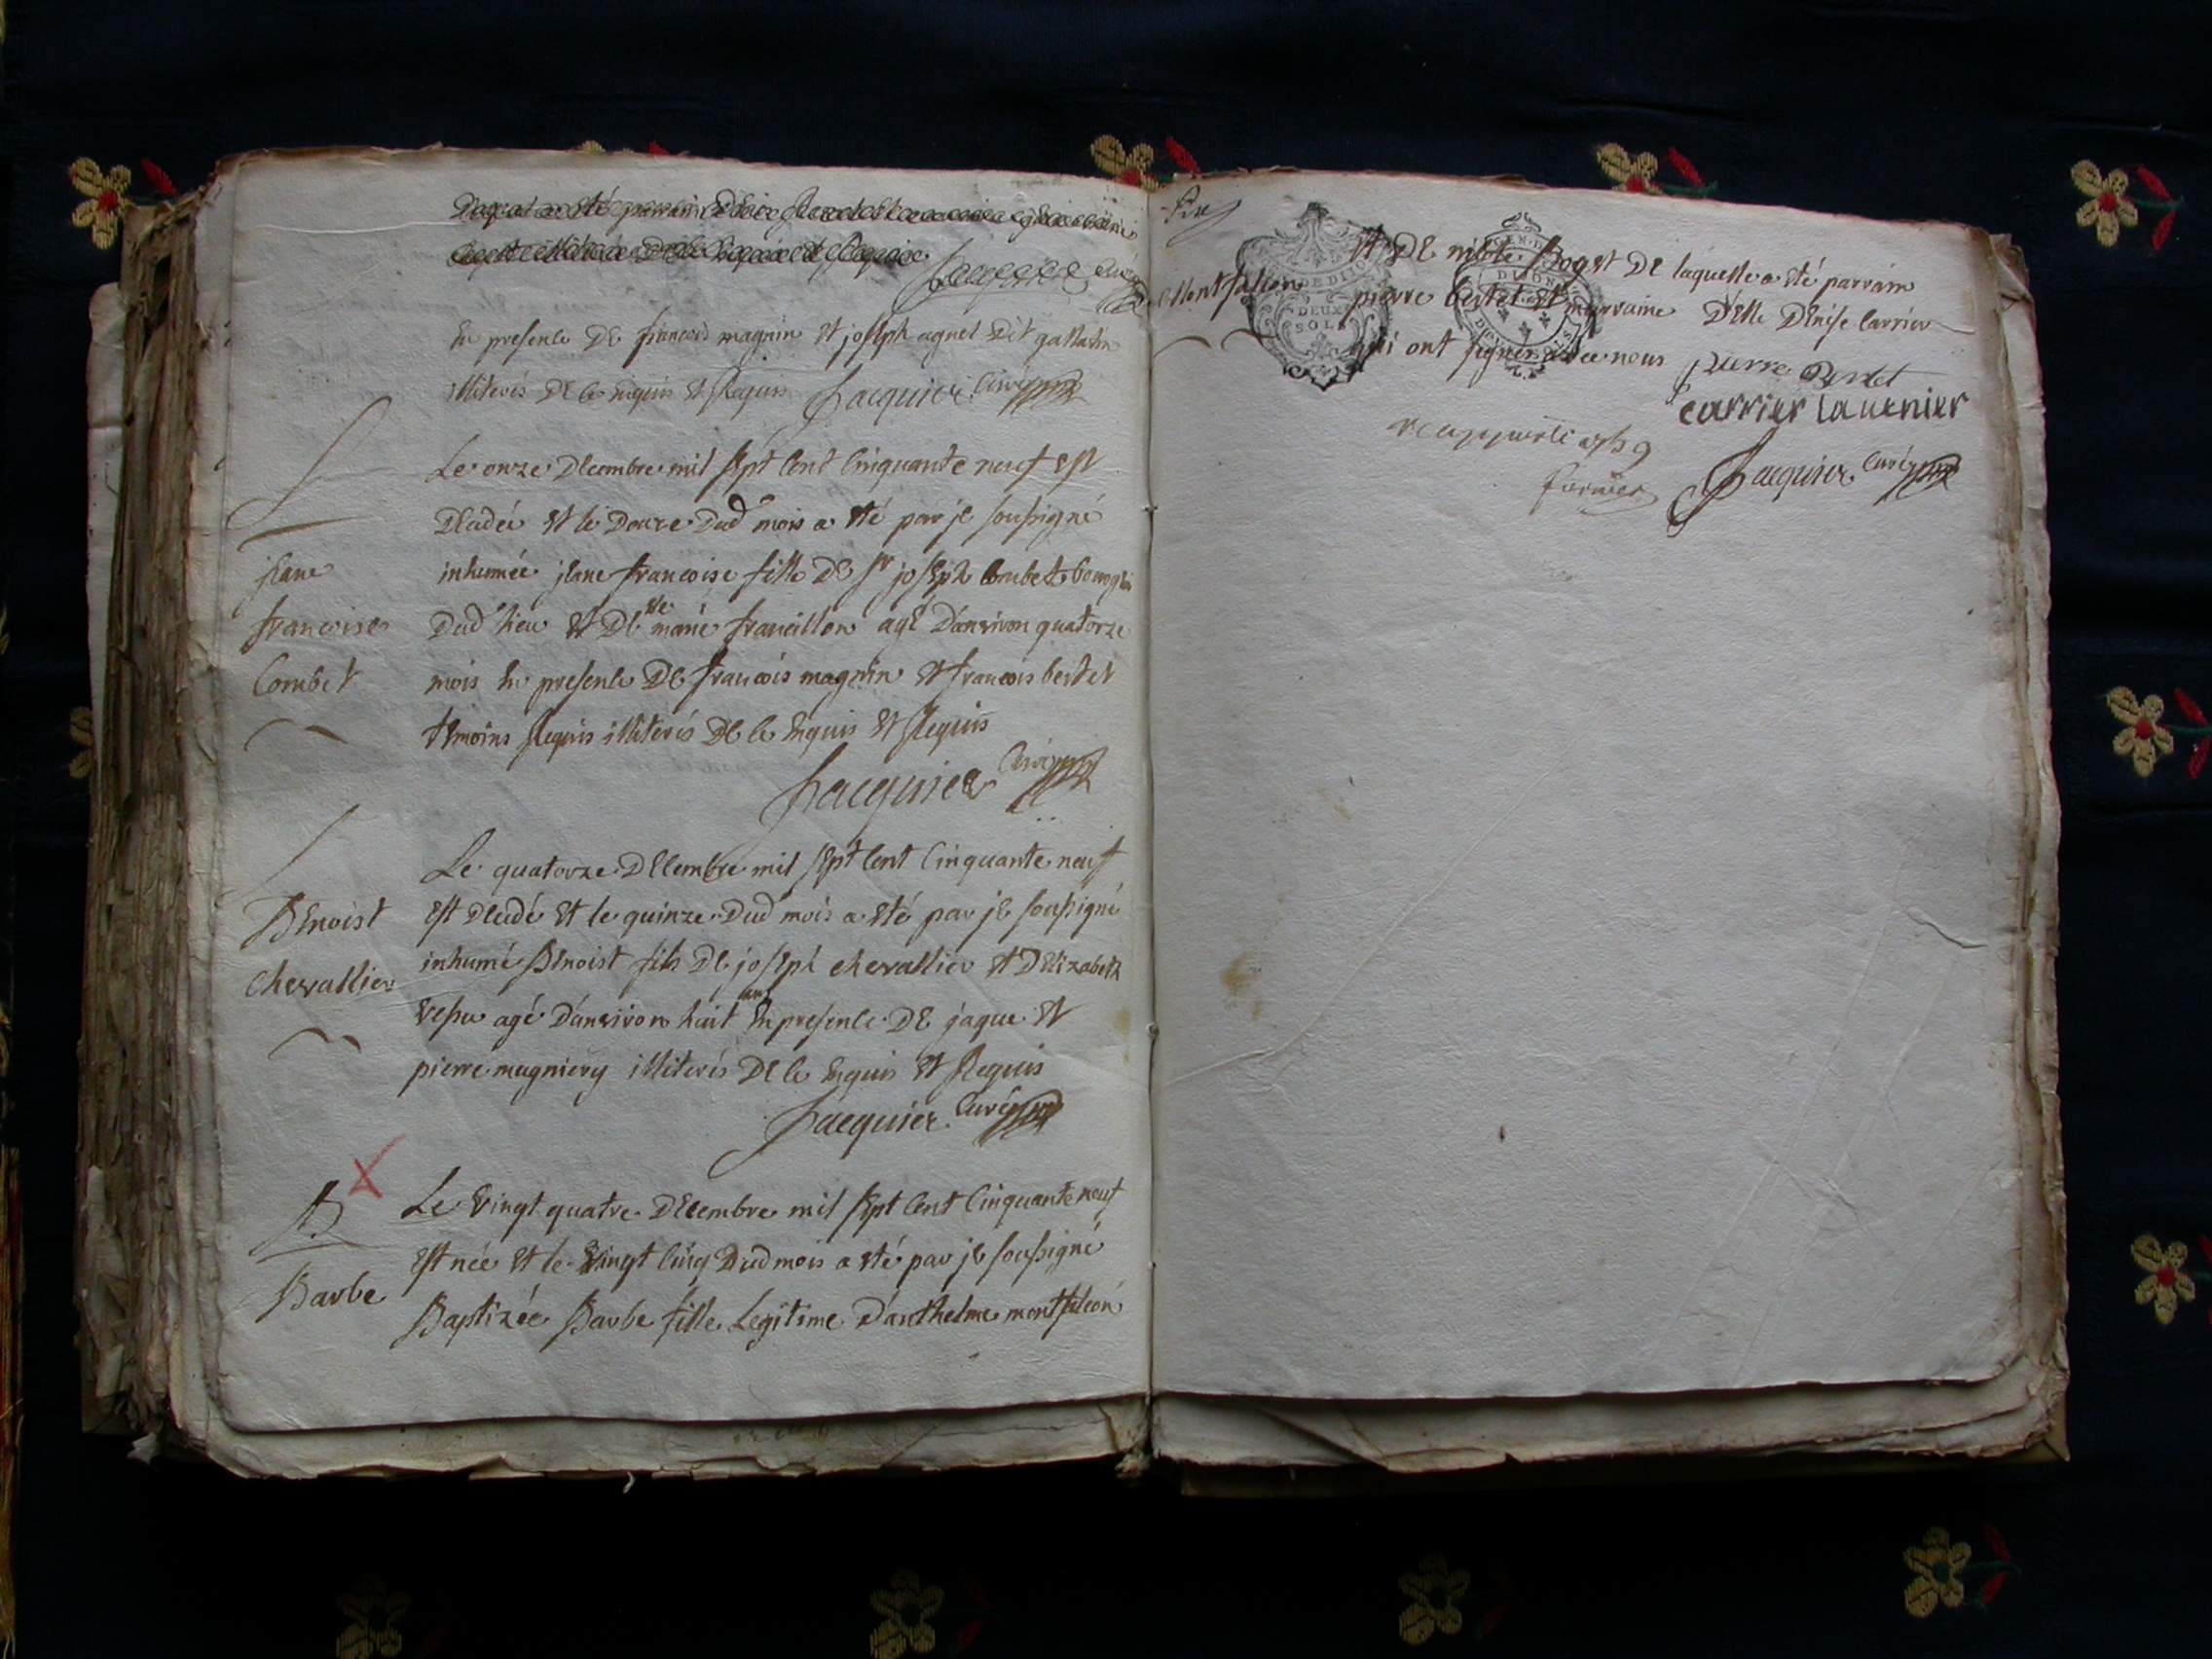 Duquel a eté parrain
Jacquier Curé
En presence De francois magnin Et joseph aguet Dit gallatin
illiterés De ce enquis Et Requis Jacquier Curé
Le onze Decembre mil sept Cent Cinquante neuf est
Decedée et le Douze Dud mois a eté par je soussigné
jeane
inhumée jeane francoise fille De Sr joseph Combet bourgeois
francoise
Dud lieu Et De elle marie francillon agé D'environ quatorze
Combet
mois En presence De francois magnin Et francois bertet
temoins Requis illiterés De ce Enquis Et Requis
Jacquier Curé
Le quatorze Decembre mil sept Cent Cinquante neuf
Benoist
est Decedé et le quinze Dud mois a eté par je soussigné
inhumé Benoist fils De joseph chevallier et D'Elizabeth
chevallier
agé D'environ huit ans En presence De jaque Et
pierre magniery illiterés De ce Enquis Et Requis
Jacquier Curé
B
Le Vingt quatre Decembre mil sept Cent Cinquante neuf
est née et le Vingt Cinq Dud mois a eté par je soussigné
Barbe
Baptizée Barbe fille Legitime D'anthelme montfalcon
Et De Bogst De laquelle a eté parrain
Montfalcon
pierre bertet Et marraine Delle Denise Carrier
qui ont signés avec nous pierre Bertet
carrier tavernier
Jacquier Curé
GEN. DE DIJON
DEUX SOLS
DIJON